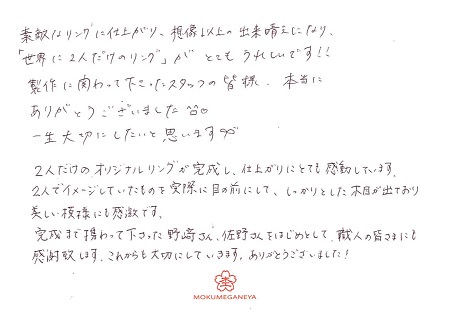 素敵なリングに仕上がり、想像以上の出来晴えになり、
「世界に2人だけのリング」が とてもうれしいです!!
製作に関わって下さったスタッフの皆様、本当に
ありがとうございました ^o^。
一生大切にしたいと思います
2人だけのオリジナルリングが完成し、仕上がりにとても感動しています。
2人でイメージしていたものを実際に目の前にして、しっかりとした木目が出ており
美しい模様にも感激です。
完成まで携わって下さった野崎さん、佐野さんをはじめとして、職人の皆さまにも
感謝致します。これからも大切にしていきます。ありがとうございました!
MOKUMEGANEYA